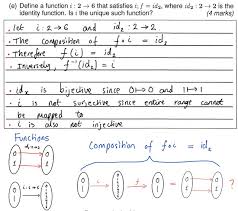 (e) Define a function i : 2 → 6 that satisfies i; f = id₂, where id₂ : 2 → 2 is the
identity function. Is i the unique such function? (4 marks)
. let i : 2 → 6 and id₂ : 2 → 2
. The composition of f∘i = id₂
. Therefore f(i) = id₂
. Inversely, f⁻¹(id₂) = i
. id₂ is bijective since 0↦0 and 1↦1
. i is not surjective since entire range cannot
be mapped to
. i is also not injective
Functions
Composition of f∘i = id₂
i
f
=
?